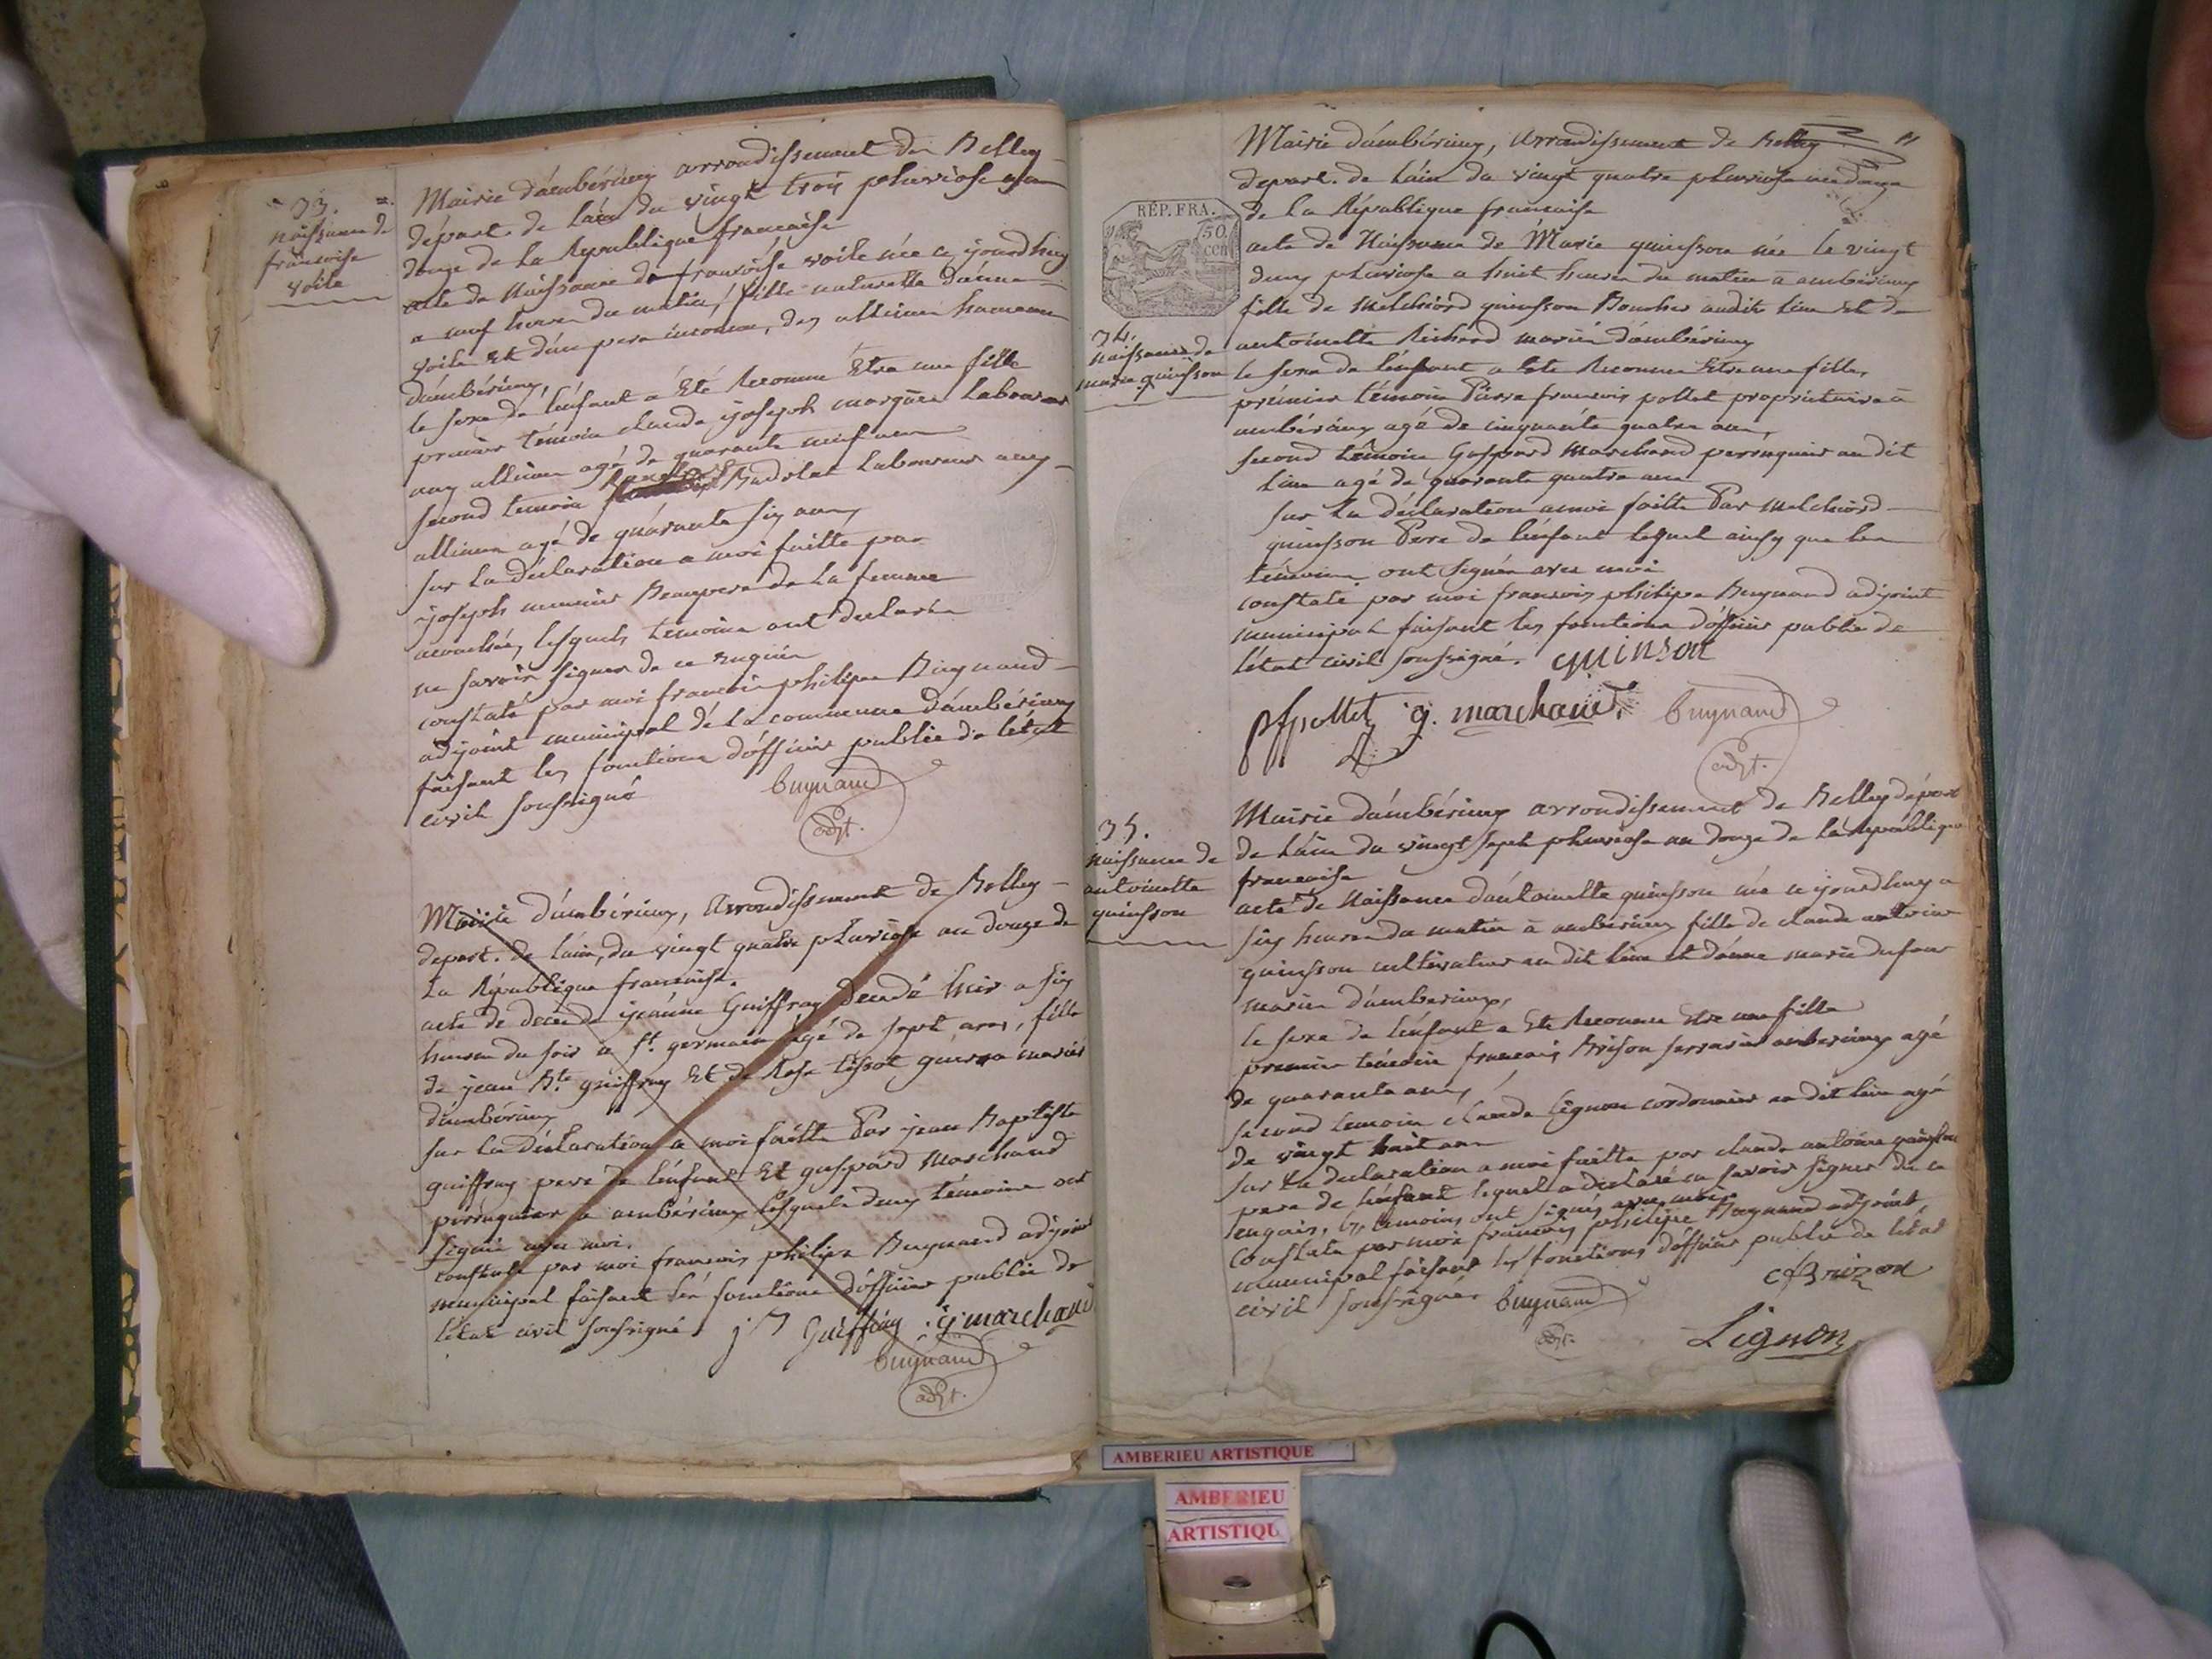 33.
naissance de
francoise
voile
Mairie d'ambérieux arrondissement de Belley
départ. de l'ain du vingt trois pluviose an
douze de la Republique francaise
acte de Naissance de francoise voile née ce jourd'huy
a neuf heures du matin, fille naturelle d'anne
voile Et d'un pere inconnu, des allimes hameau
d'ambérieux,
le sexe de l'enfant a Eté Reconnu Etre une fille
premier témoin claude joseph marquis Laboureur
aux allimes agé de quarante neuf ans
second temoin Badolat Laboureur aux
allimes agé de quarante six ans,
sur la déclaration a moi faitte par
joseph meunier Beaupere de la femme
acouchée, lesquels temoins ont declarés
ne savoir signer de ce Enquis
constaté par moi francois philipe Buynand
adjoint municipal de la commune d'ambérieux
faisant les fonctions d'officier public de l'état
civil soussigné
buynand
adjt.
Mairie d'ambérieux, Arrondissement de Belley
depart. de l'ain, du vingt quatre pluviose an douze de
La République francaise.
acte de deces de jeanne Guiffray decedé hier a six
heures du soir a st. germain agé de sept ans, fille
de jean Bte guiffray Et de Rose tissot mariés
d'ambérieux
sur la Déclaration a moi faitte Par jean Baptiste
guiffray pere de l'enfant Et gaspard Marchand
perruquier a ambérieux lesquels deux témoins ont
signé avec moi.
constaté par moi francois philipe Buynand adjoint
municipal faisant les fonctions d'officier public de
l'état civil soussigné. j B Guiffray g marchand
buynand
adjt.
Mairie d'ambérieux, Arrondissement de Belley
depart. de l'ain du vingt quatre pluviose an douze
de la République francaise
RÉP. FRA.
50
cen
34.
naissance de
marie quinsson
acte de Naissance de Marie quinsson née le vingt
deux pluviose a huit heures du matin a ambérieux
fille de Melchiord quinsson Boucher audit lieu Et de
antoinette Richard mariés d'ambérieux
le sexe de l'enfant a Ete Reconnu Etre une fille,
prémier témoin Pierre francois pollet propriétaire à
ambérieux agé de cinquante quatre ans,
second témoin Gaspard Marchand perruquier au dit
lieu agé de quarante quatre ans
sur la déclaration a moi faitte Par Melchiord
quinsson Pere de l'enfant lequel ainsy que les
témoins ont signés avec moi
constaté par moi francois philipe Buynand adjoint
municipal faisant les fonctions d'officier public de
l'état civil soussigné. quinson
pfpollet g. marchand buynand
adjt.
35.
naissance de
antoinette
quinsson
Mairie d'ambérieux arrondissement de Belley départ
de l'ain du vingt sept pluviose an douze de la République
francaise
acte de Naissance d'antoinette quinsson née ce jourd'huy a
six heures du matin à ambérieux fille de claude antoine
quinsson cultivateur au dit lieu et d'anne marie dufour
mariés d'amberieux,
le sexe de l'enfant a Ete Reconnu Etre une fille
premier témoin francois Brison serrurier amberieux agé
de quarante ans,
second temoin claude Lignon cordonnier au dit lieu agé
de vingt huit ans
sur la declaration a moi faitte par claude antoine quinsson
pere de l'enfant lequel a declaré ne savoir signer de ce
enquis, les temoins ont signés avec moi
Constaté par moi francois philipe Buynand adjoint
municipal faisant les fonctions d'officier public de l'état
civil soussigné buynand
adjt.
Brizon
Lignon
AMBERIEU ARTISTIQUE
AMBERIEU
ARTISTIQU